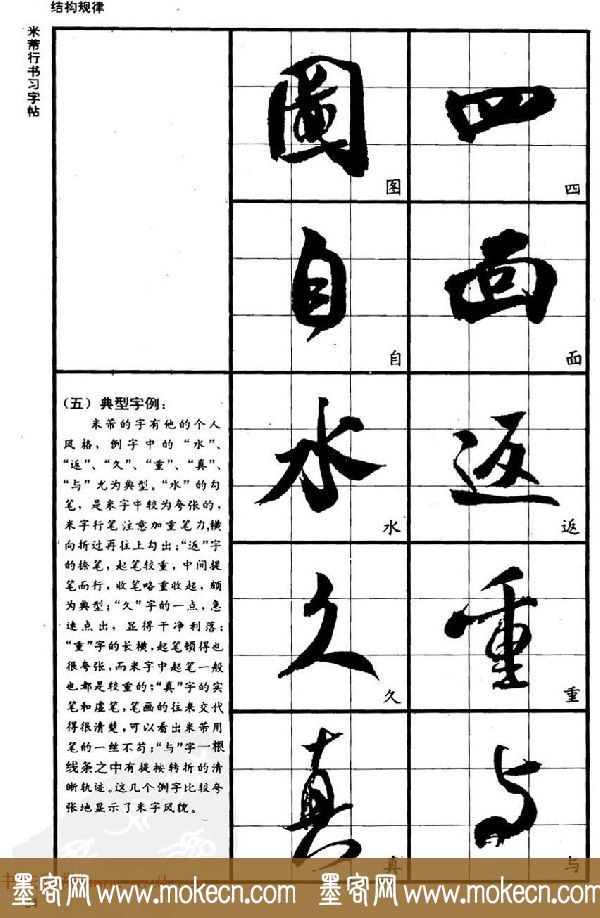 结构规律
米芾行书习字帖
圖
图
四
四
自
自
面
面
(五)典型字例：
米芾的字有他的个人
风格，例字中的“水”、
“返”、“久”、“重”、“真”、
“与”尤为典型。“水”的勾
笔，是米字中较为夸张的，
米字行笔注意加重笔力，横
向折过再往上勾出；“返”字
的捺笔，起笔较重，中间提
笔而行，收笔略重收起，颇
为典型；“久”字的一点，急
速点出，显得干净利落；
“重”字的长横，起笔顿得也
很夸张，而米字中起笔一般
也都是较重的；“真”字的实
笔和虚笔，笔画的往来交代
得很清楚，可以看出米芾用
笔的一丝不苟；“与”字一根
线条之中有提按转折的清
晰轨迹。这几个例字比较夸
张地显示了米字风貌。
水
水
返
返
久
久
重
重
真
真
与
与
墨客网 www.mokecn.com 墨客网 www.mokecn.com